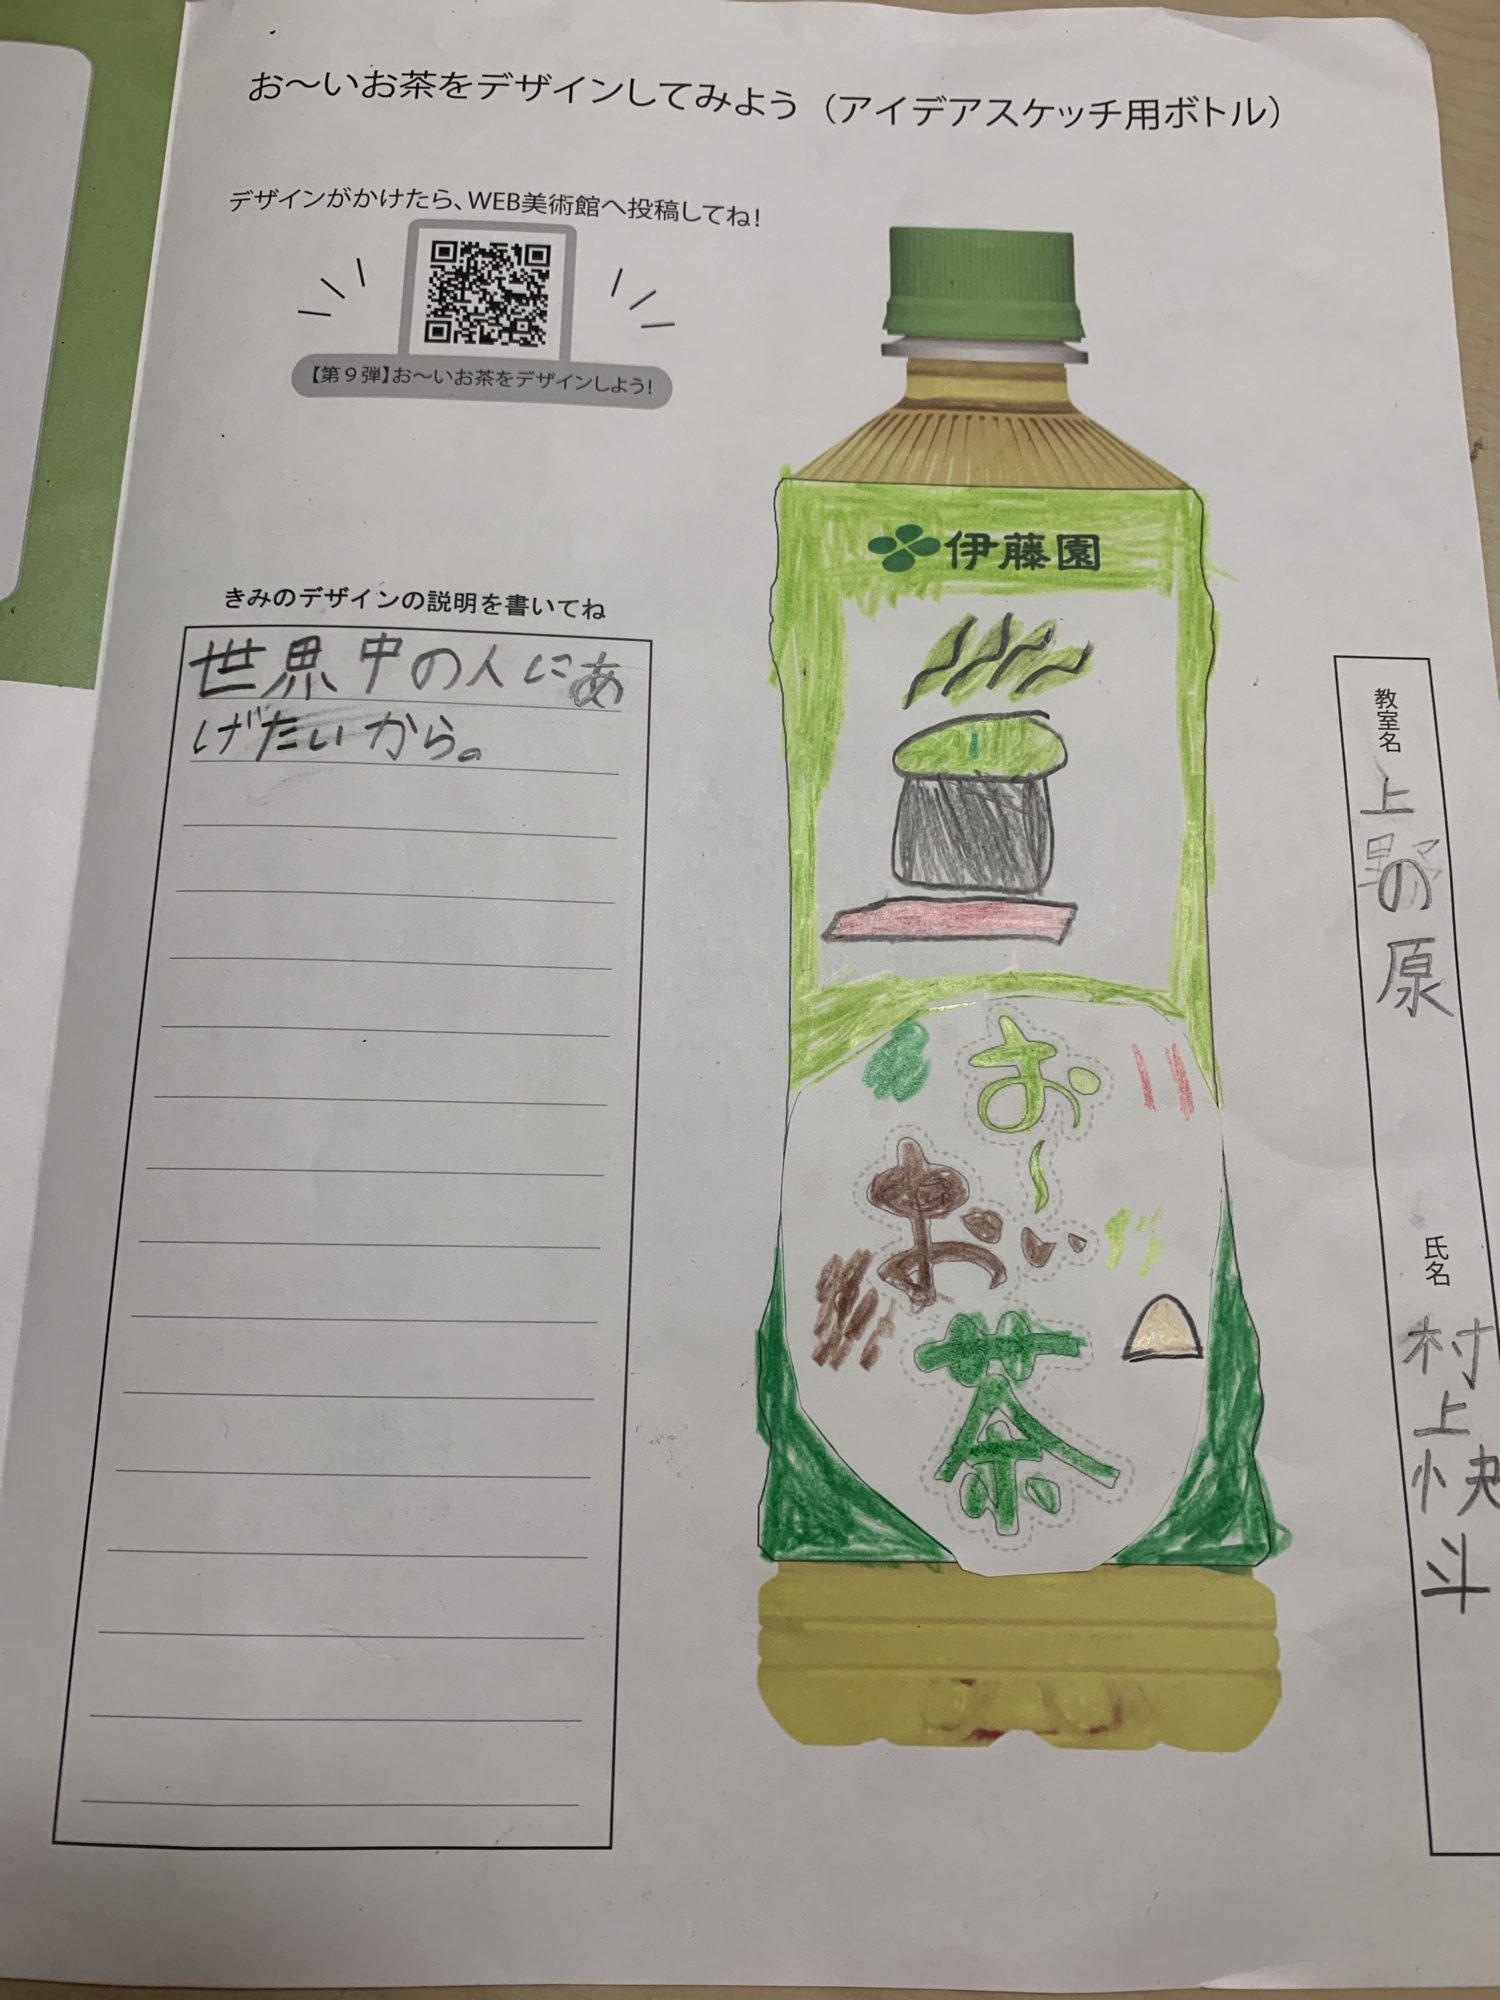 お〜いお茶をデザインしてみよう（アイデアスケッチ用ボトル）
デザインがかけたら、WEB美術館へ投稿してね！
【第９弾】お〜いお茶をデザインしよう！
きみのデザインの説明を書いてね
世界中の人にあ
げたいから。
伊藤園
お〜
おい
茶
教室名
上の原
氏名
村上快斗